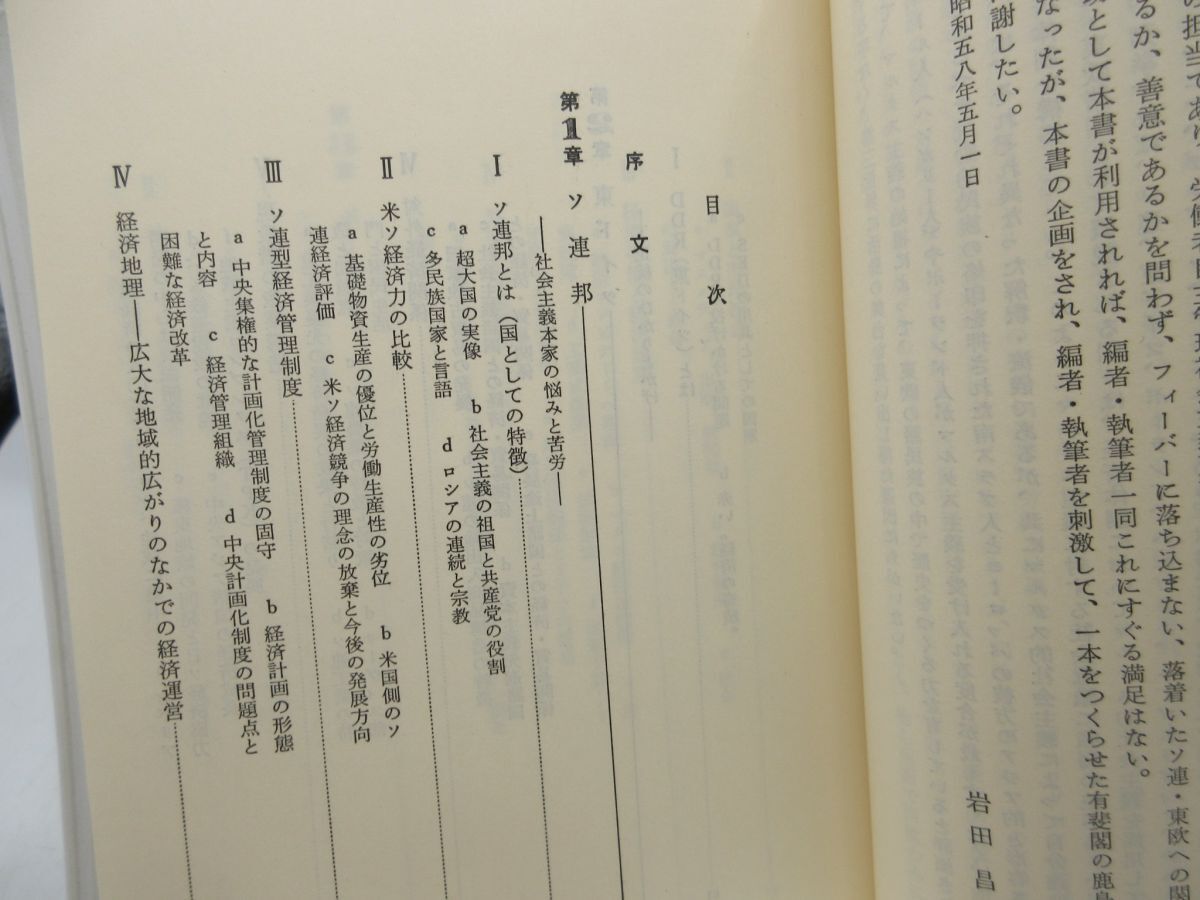 の担当であり、
るか、善意であるかを問わず、フィーバーに落ち込まない、落着いたソ連・東欧への関
として本書が利用されれば、編者・執筆者一同これにすぐる満足はない。
なったが、本書の企画をされ、編者・執筆者を刺激して、一本をつくらせた有斐閣の鹿島
謝したい。
昭和五八年五月一日
岩田昌
目次
序文
第1章 ソ連邦
――社会主義本家の悩みと苦労――
Ⅰ ソ連邦とは（国としての特徴）
a 超大国の実像 b 社会主義の祖国と共産党の役割
c 多民族国家と言語 d ロシアの連続と宗教
Ⅱ 米ソ経済力の比較
a 基礎物資生産の優位と労働生産性の劣位 b 米国側のソ
連経済評価 c 米ソ経済競争の理念の放棄と今後の発展方向
Ⅲ ソ連型経済管理制度
a 中央集権的な計画化管理制度の固守 b 経済計画の形態
と内容 c 経済管理組織 d 中央計画化制度の問題点と
困難な経済改革
Ⅳ 経済地理――広大な地域的広がりのなかでの経済運営